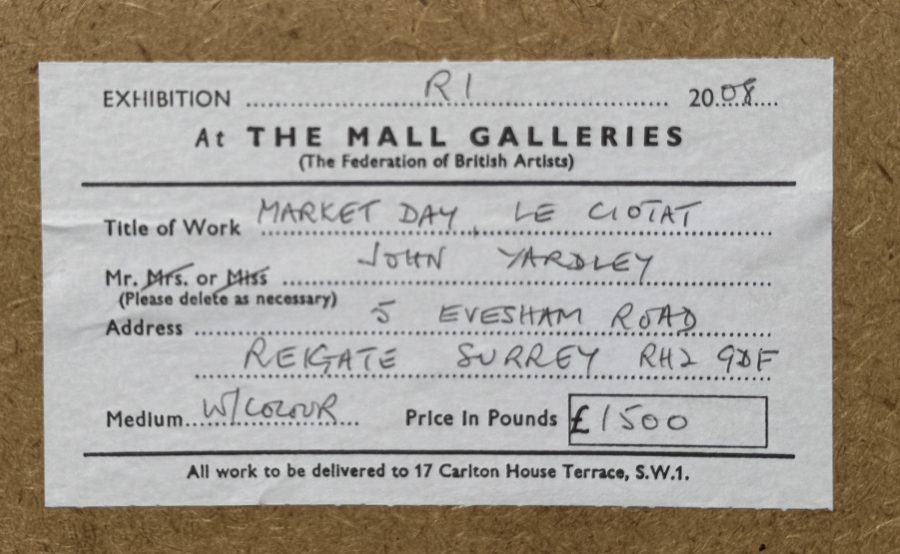 EXHIBITION RI 2008
At THE MALL GALLERIES
(The Federation of British Artists)
Title of Work MARKET DAY, LE CIOTAT
Mr. Mrs. or Miss JOHN YARDLEY
(Please delete as necessary)
Address 5 EVESHAM ROAD
REIGATE SURREY RH2 9DF
Medium W/COLOUR Price In Pounds £1500
All work to be delivered to 17 Carlton House Terrace, S.W.1.